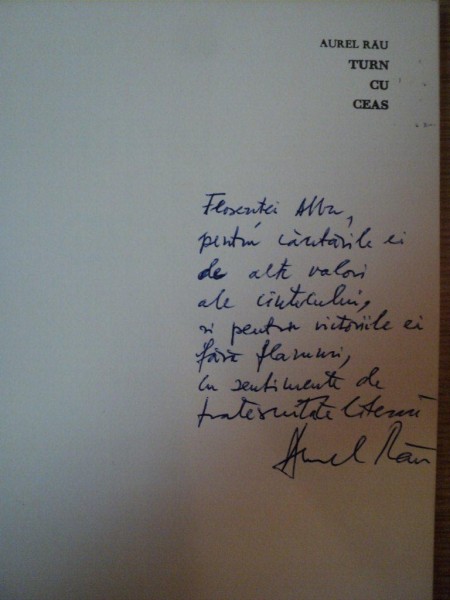 AUREL RĂU
TURN
CU
CEAS
Florenței Albu,
pentru căutările ei
de alte valori
ale cîntecului,
și pentru victoriile ei
fără flamuri,
cu sentimente de
fraternitate literară
Aurel Rău